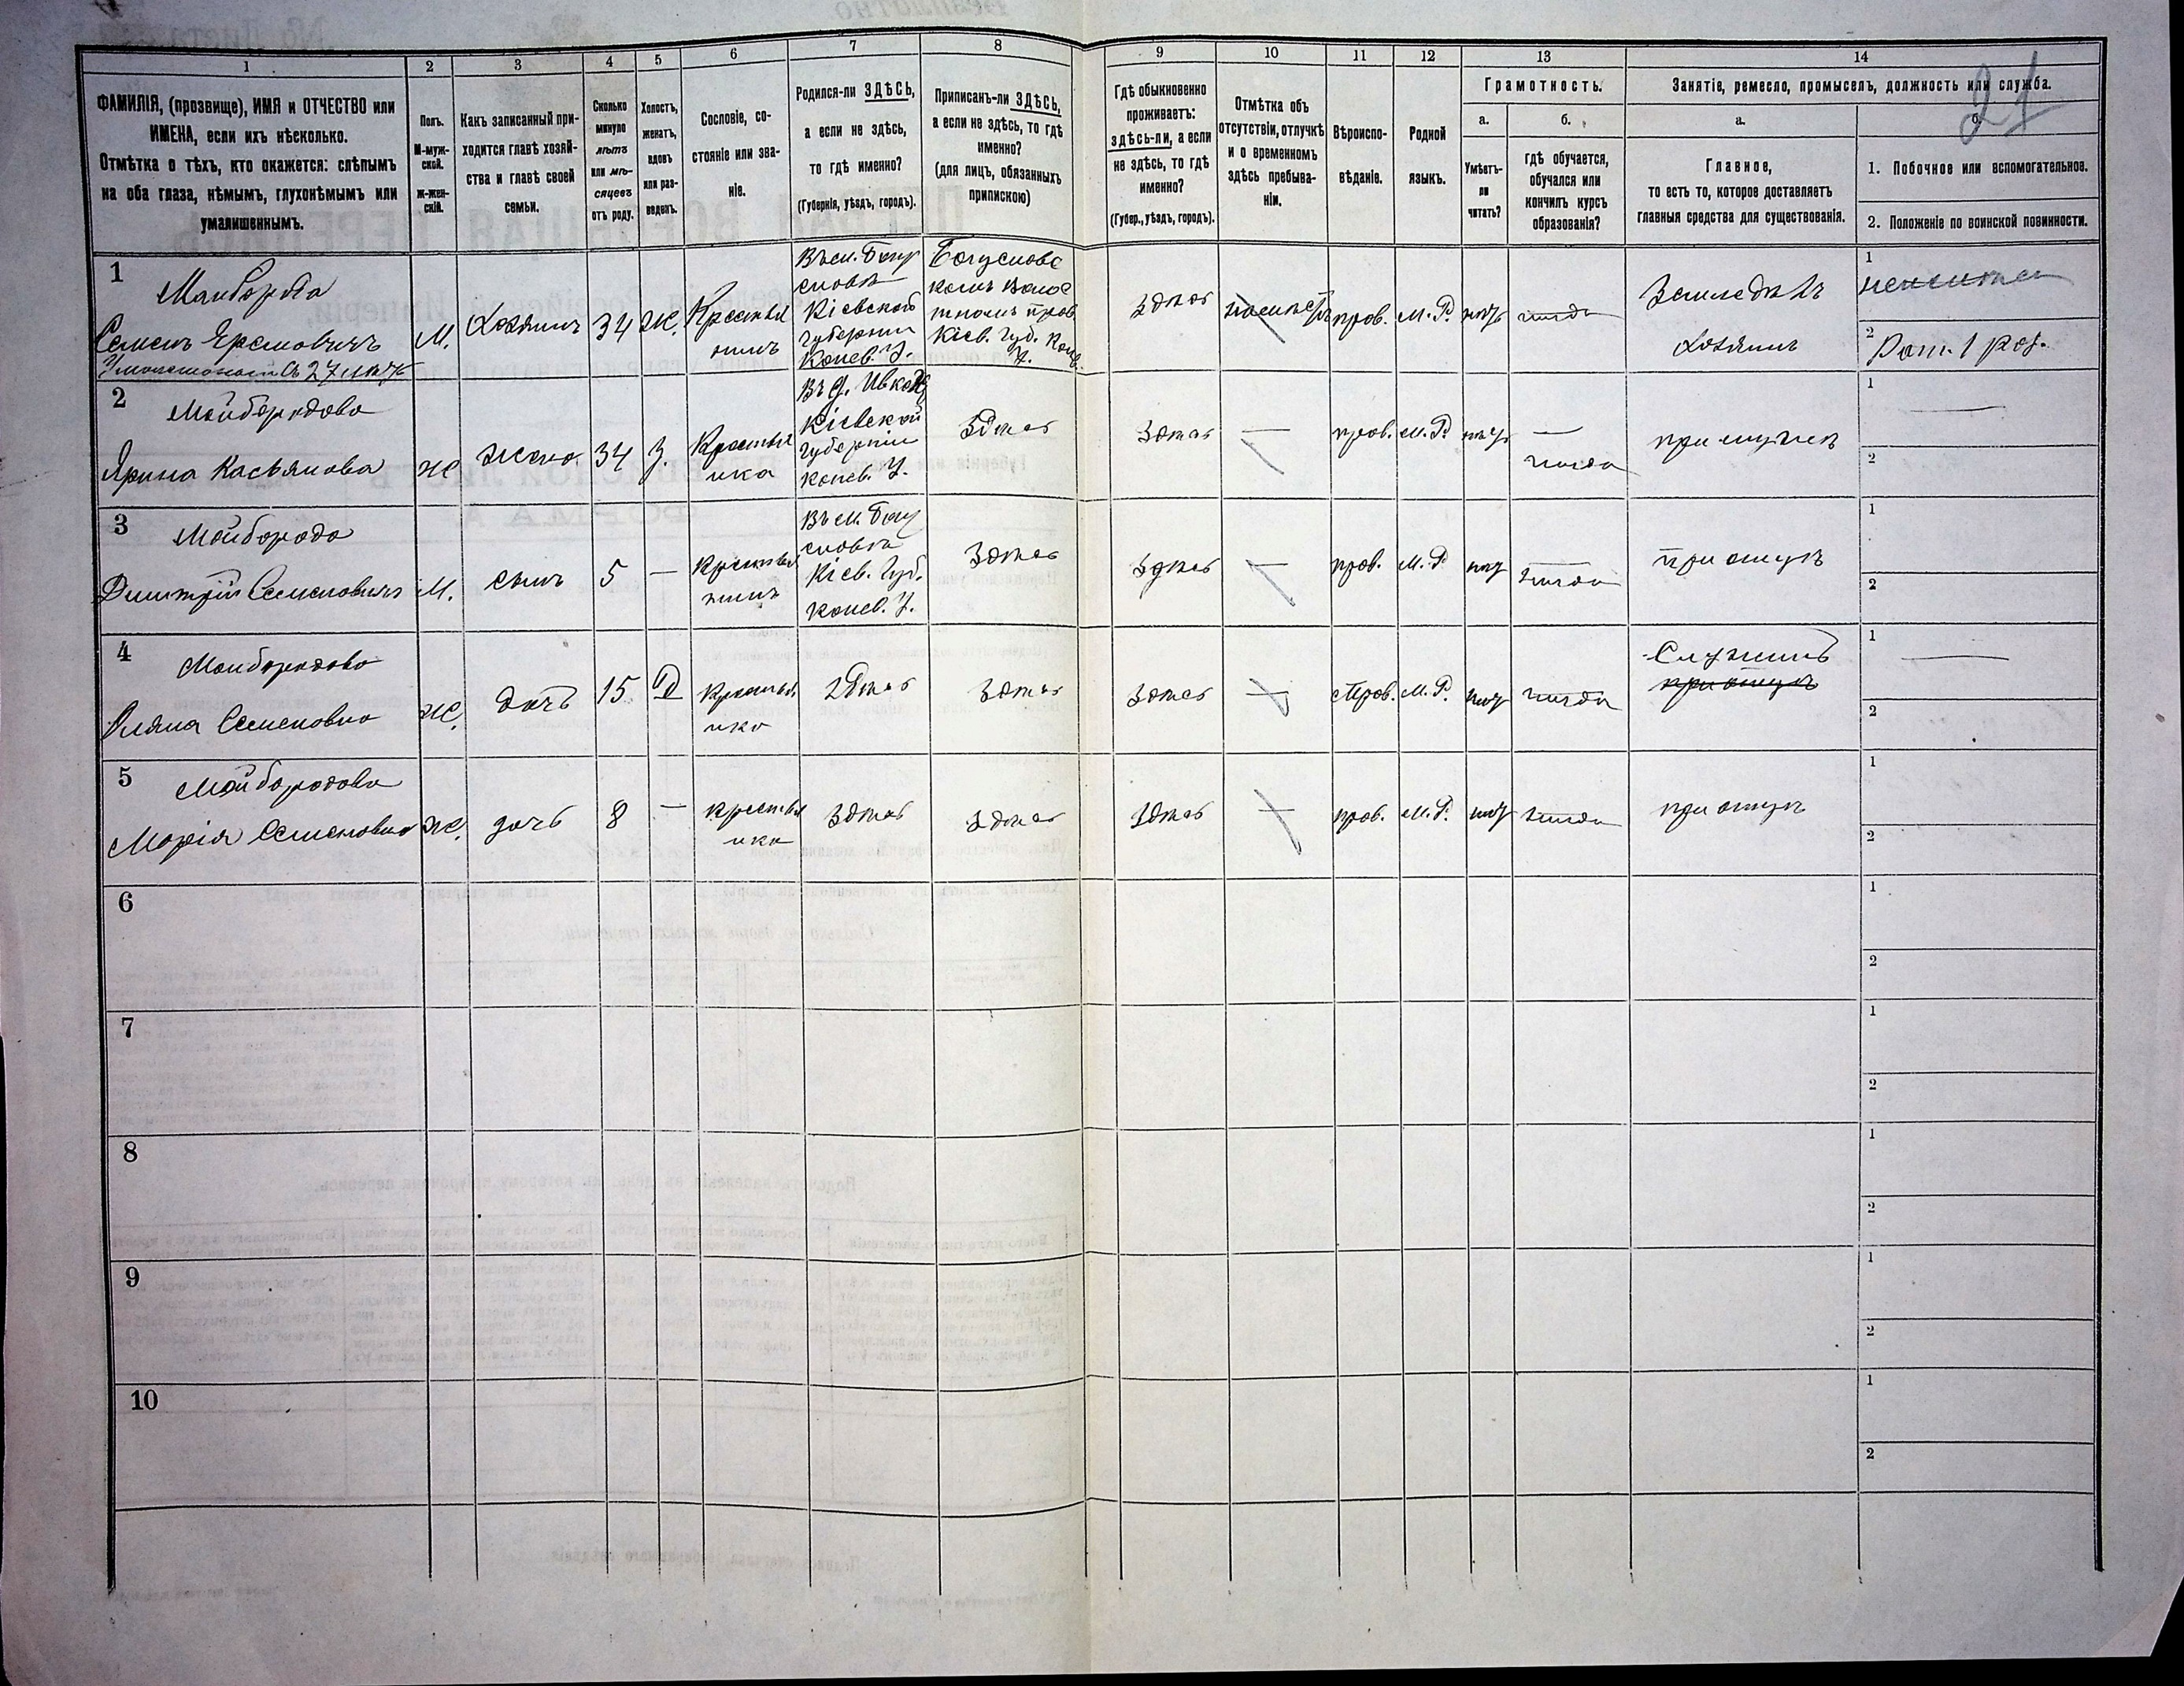 1 2 3 4 5 6 7 8 9 10 11 12 13 14
ФАМИЛІЯ, (прозвище), ИМЯ и ОТЧЕСТВО или
ИМЕНА, если ихъ нѣсколько.
Отмѣтка о тѣхъ, кто окажется: слѣпымъ
на оба глаза, нѣмымъ, глухонѣмымъ или
умалишеннымъ.
Полъ.
М-муж-
ской.
Ж-жен-
скій.
Какъ записанный при-
ходится главѣ хозяй-
ства и главѣ своей
семьи.
Сколько
минуло
лѣтъ
или мѣ-
сяцевъ
отъ роду.
Холостъ,
женатъ,
вдовъ
или раз-
веденъ.
Сословіе, со-
стояніе или зва-
ніе.
Родился-ли ЗДѢСЬ,
а если не здѣсь,
то гдѣ именно?
(Губернія, уѣздъ, городъ).
Приписанъ-ли ЗДѢСЬ,
а если не здѣсь, то гдѣ
именно?
(для лицъ, обязанныхъ
припискою)
Гдѣ обыкновенно
проживаетъ:
ЗДѢСЬ-ЛИ, а если
не здѣсь, то гдѣ
именно?
(Губер., уѣздъ, городъ).
Отмѣтка объ
отсутствіи, отлучкѣ
и о временномъ
здѣсь пребыва-
ніи.
Вѣроиспо-
вѣданіе.
Родной
языкъ.
Грамотность.
а.
Умѣетъ-
ли
читать?
б.
гдѣ обучается,
обучался или
кончилъ курсъ
образованія?
Занятіе, ремесло, промыселъ, должность или служба.
21
а.
Главное,
то есть то, которое доставляетъ
главныя средства для существованія.
б.
1. Побочное или вспомогательное.
2. Положеніе по воинской повинности.
1
Майборода
Семенъ Еремовичъ
съ 27 лѣтъ
М.
Хозяинъ
34
Ж.
Крестья
нинъ
Въ м. Богу
словкѣ
Кіевской
губерніи
Канев. У.
Богуслов
комъ Волос
тномъ прав.
Кіев. Губ. Канев.
У.
Здѣсь
прав.
М. Р.
нѣтъ
Земледѣлъ
Хозяинъ
1
2
Рат. 1 раз.
2
Майбородова
Ярина Касьянова
Ж
Жена
34
З.
Крестья
нка
Въ д.
Кіевской
губерніи
Канев. У.
Здѣсь
Здѣсь
—
прав.
М. Р.
нѣтъ
—
при мужѣ
1
2
3
Майборода
Дмитрій Семеновичъ
М.
сынъ
5
—
Крестья
нинъ
Въ м. Богу
словкѣ
Кіев. Губ.
Канев. У.
Здѣсь
Здѣсь
—
прав.
М. Р.
нѣтъ
при отцѣ
1
2
4
Майбородова
Оляна Семеновна
Ж.
дочь
15
Д
Крестья
нка
Здѣсь
Здѣсь
Здѣсь
—
Прав.
М. Р.
нѣтъ
Служитъ
при отцѣ
1
2
5
Майбородова
Марія Семеновна
Ж.
дочь
8
—
крестья
нка
Здѣсь
Здѣсь
Здѣсь
—
прав.
М. Р.
нѣтъ
при отцѣ
1
2
6
1
2
7
1
2
8
1
2
9
1
2
10
1
2